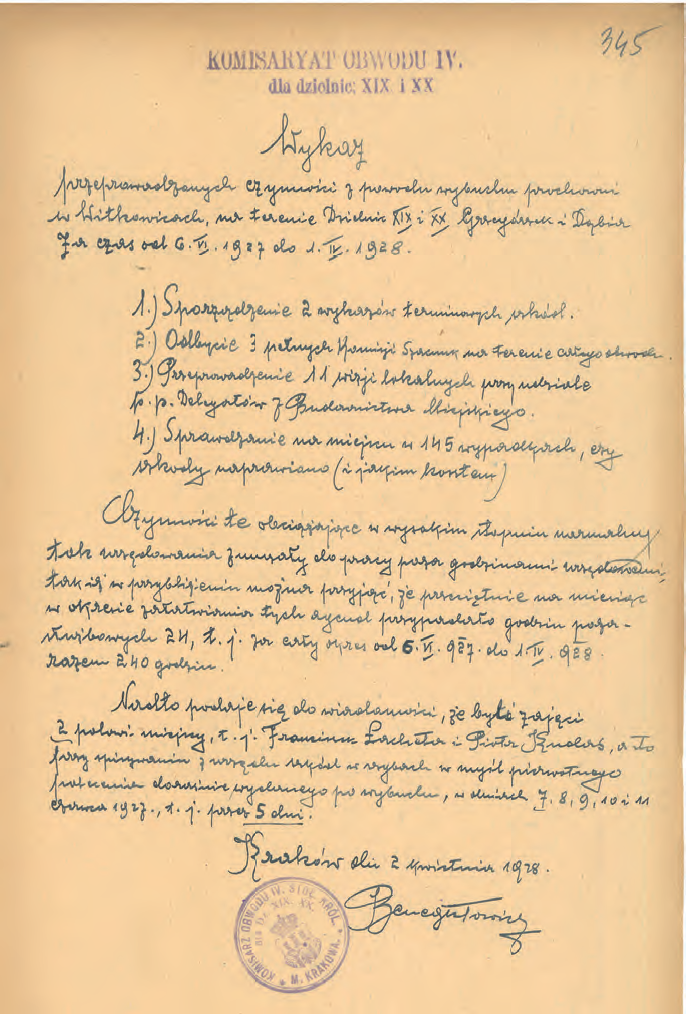 345
KOMISARYAT OBWODU IV.
dla dzielnic: XIX i XX
Wykaz
przeprawadzonych czynności z powodu wybuchu prochowni
w Witkowicach, na terenie Dzielnic XIX i XX Grzegórzek i Dąbia
Za czas od 6. VI. 1927 do 1. IV. 1928.
1.) Sporządzenie 2 wykazów terminowych szkód.
2.) Odbycie 3 pełnych Komisji Szacunk. na terenie całego obwodu.
3.) Przeprowadzenie 11 wizji lokalnych przy udziale
p. p. Delegatów z Budownictwa Miejskiego.
4.) Sprawdzanie na miejscu w 145 wypadkach, czy
szkody naprawiono (i jakim kosztem)
Czynności te obciążające w wysokim stopniu normalny
tok urzędowania zmusiły do pracy poza godzinami urzędowemi,
tak iż w przybliżeniu można przyjąć, że przeciętnie na miesiąc
w okresie załatwiania tych agend przypadało godzin poza-
służbowych 24, t. j. za cały okres od 6. VI. 927. do 1. IV. 928.
razem 240 godzin.
Nadto podaje się do wiadomości, że byli zajęci
2 polowi miejscy, t. j. Franciszek Lacheta i Piotr a to
przy spisywaniu z urzędu szkód w szybach w myśl pierwotnego
polecenia doraźnie wydanego po wybuchu, w dniach 7, 8, 9, 10 i 11
czerwca 1927., t. j. przez 5 dni.
Kraków dn. 2 kwietnia 1928.
KOMISARZ OBWODU IV. STOŁ. KRÓL. M. KRAKOWA.
dla Dz. XIX. XX.